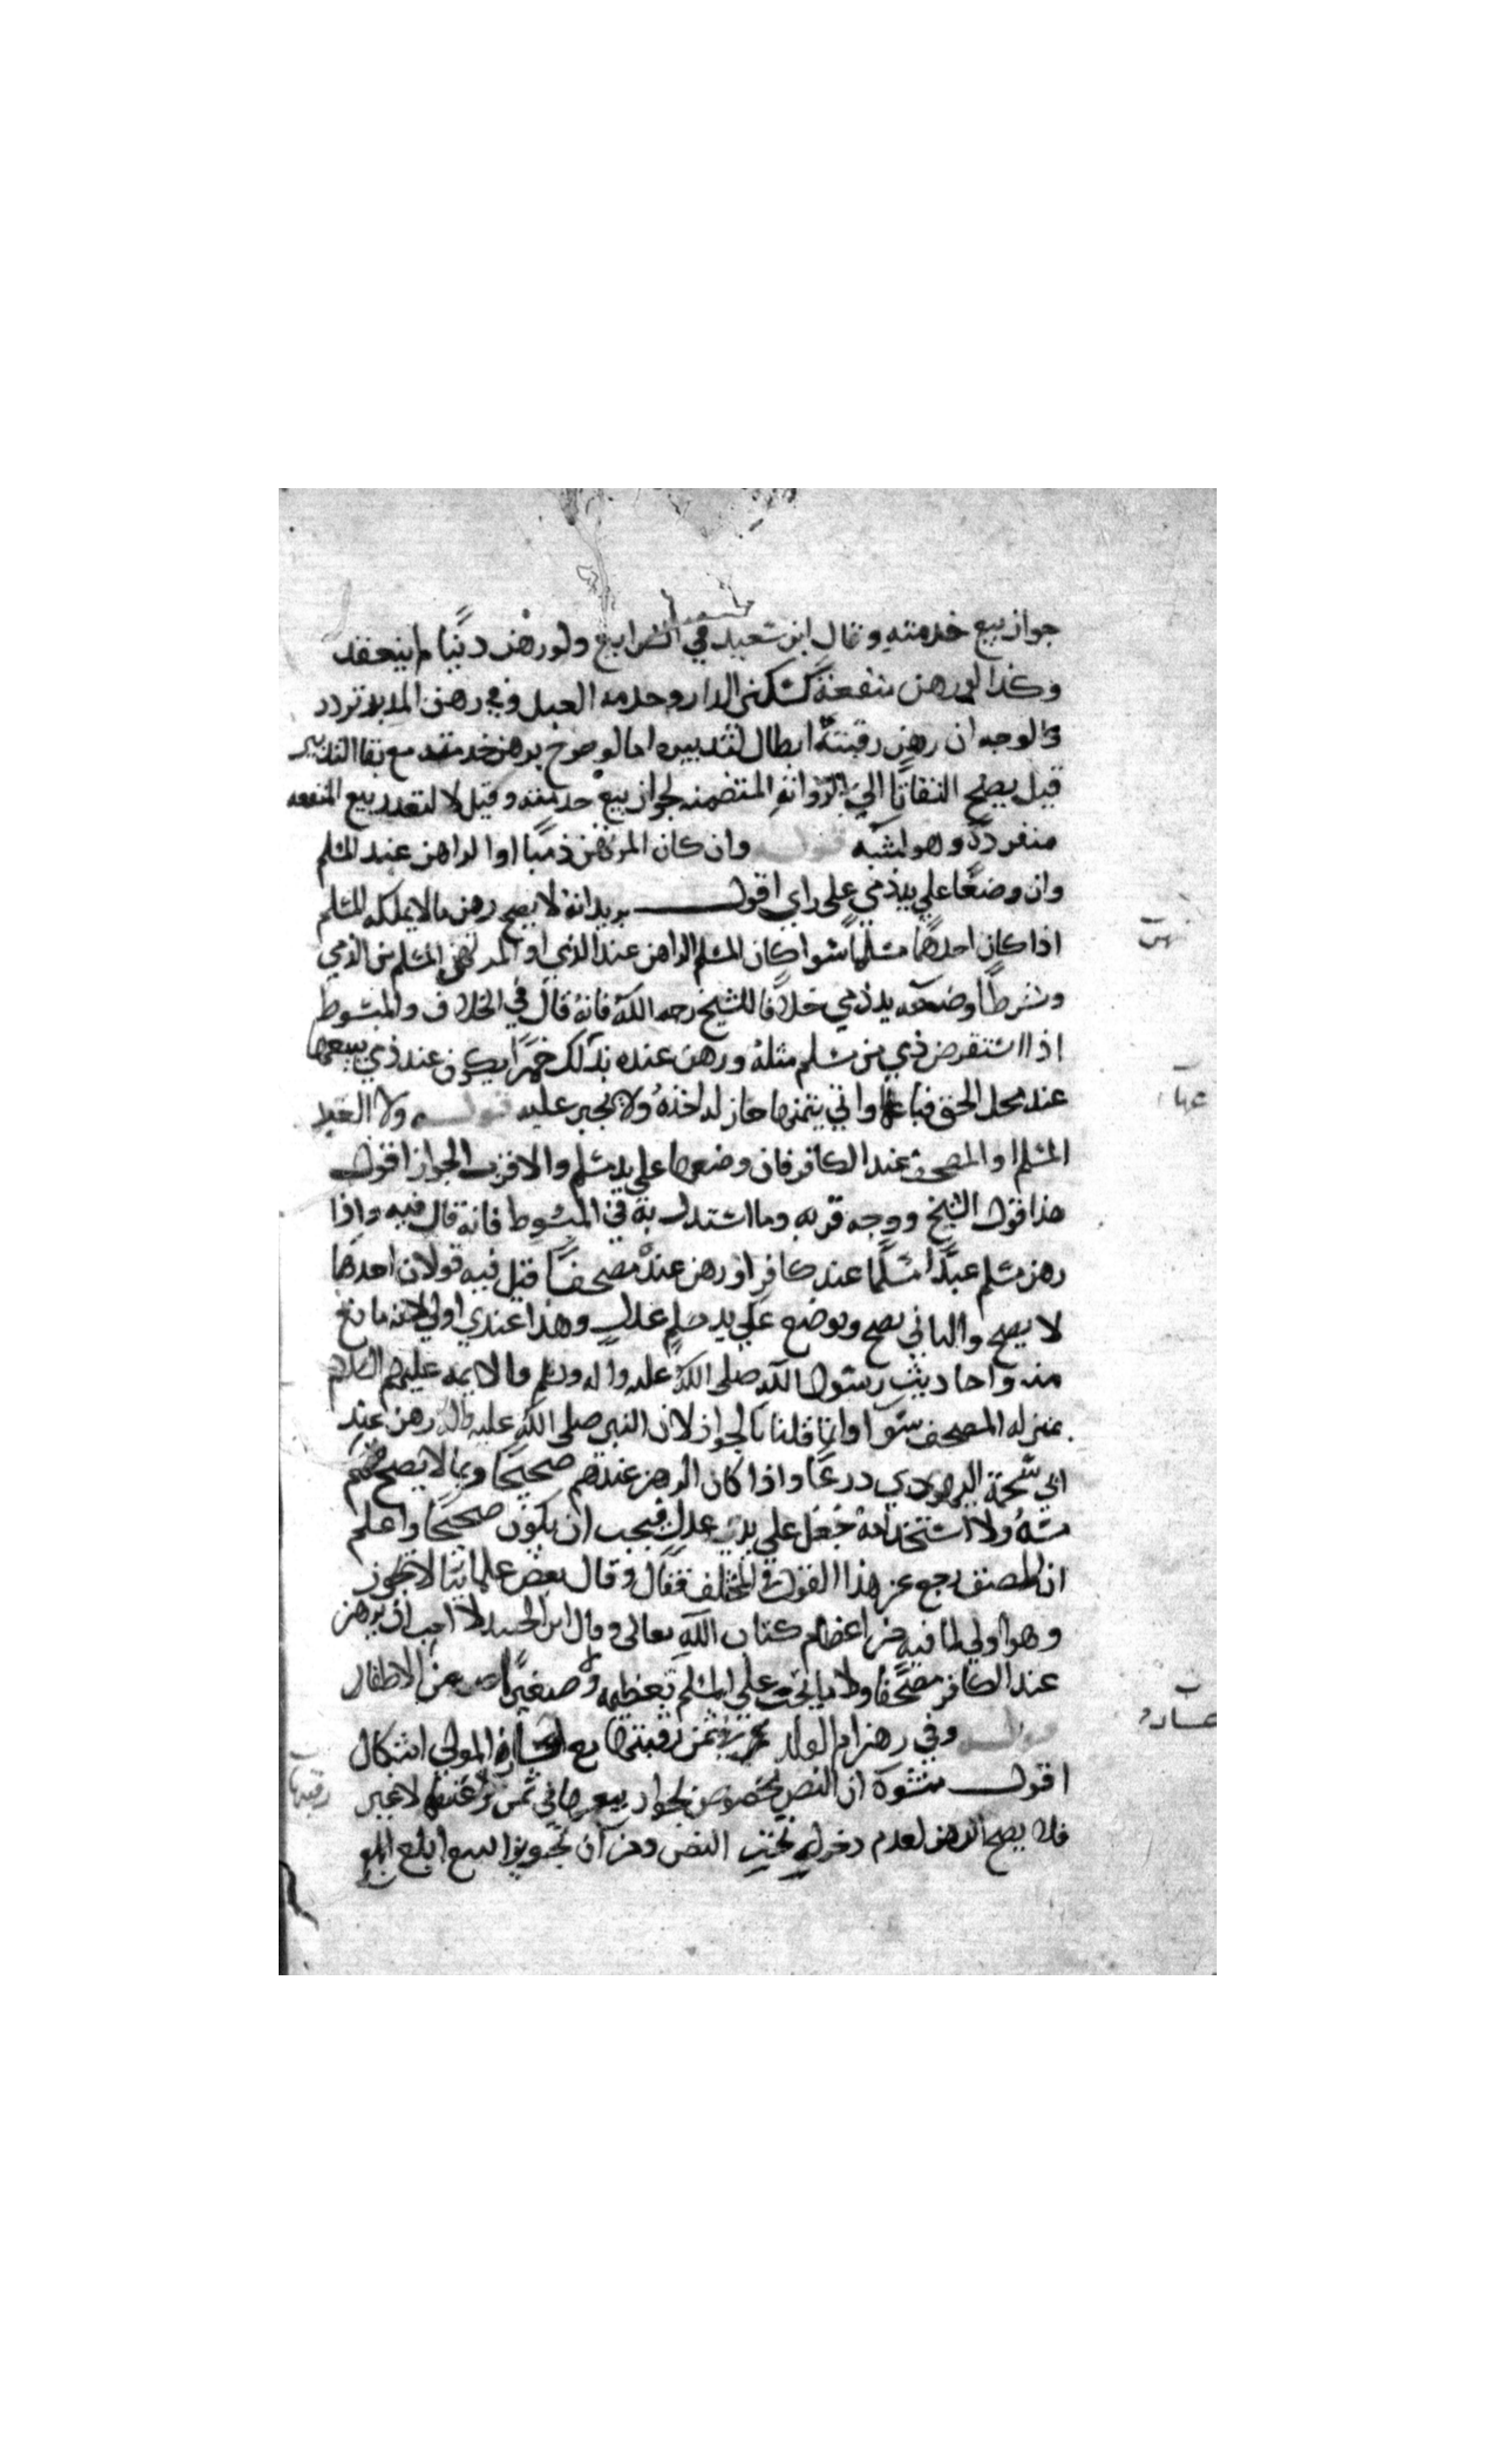 جواز بيع خدمته وقال ابن سعيد في الشرايع ولو رهن دينا لم ينعقد
وكذا لو رهن منفعة كسكنى الدار وخدمه العبد وفي رهن المدبر تردد
والوجه ان رهن رقبته ابطال لتدبيره اما لو صرح برهن خدمته مع بقا التدبير
قيل يصح التفاتا الى الرواية المتضمنه لجواز بيع خدمته وقيل لا لتعذر بيع المنفعه
منفردة وهو اشبه قوله وان كان المرتهن ذميا او الراهن عند المسلم
وان وضعا على يد ذمي على راي اقول يريد انه لا يصح رهن ما لا يملكه المسلم
اذا كان احدهما مسلما سوا كان المسلم الراهن عند الذمي او المرتهن المسلم من الذمي
وشرطا وضعه يد ذمي خلافا للشيخ رحمه الله فانه قال في الخلاف والمبسوط
اذا استقرض ذمي من مسلم مثله ورهن عنده بذلك خمرا يكون عند ذمي يبيعها
عند محل الحق فباعها واتى بثمنها جاز له اخذه ولا يجبر عليه قوله ولا العبد
المسلم او المصحف عند الكافر فان وضعها على يد مسلم والاقرب الجواز اقول
هذا قول الشيخ ووجه قربه وما استدل به في المبسوط فانه قال فيه واذا
رهن مسلم عبدا مسلما عند كافر او رهن عنده مصحفا قيل فيه قولان احدهما
لا يصح والثاني يصح ويوضع على يد مسلم عدل وهذا عندي اولى لانه لا مانع
منه واحاديث رسول الله صلى الله عليه واله وسلم والايمه عليهم السلام
بمنزله المصحف سوا وانما قلنا بالجواز لان النبي صلى الله عليه واله رهن عند
ابي شحمة اليهودي درعا واذا كان الرهن عندهم صحيحا وما لا يصح منهم
مسه ولا استخدامه جعل على يدي عدل فيجب ان يكون صحيحا واعلم
ان المصنف رجع عن هذا القول في المختلف فقال وقال بعض علمائنا لا يجوز
وهو اولى لما فيه من اعظام كتاب الله تعالى وقال ابن الجنيد لا احب ان يرهن
عند الكافر مصحفا ولا ما يجب على المسلم تعظيمه ولا صغيرا من الاطفال
قوله وفي رهن ام الولد في ثمن رقبتها مع المولى اشكال
اقول منشوه ان النص مخصوص بجواز بيعها في ثمن لا غير
فلا يصح الرهن لعدم دخوله تحت النص ومن ان تجويز البيع ابلغ
رقبتها